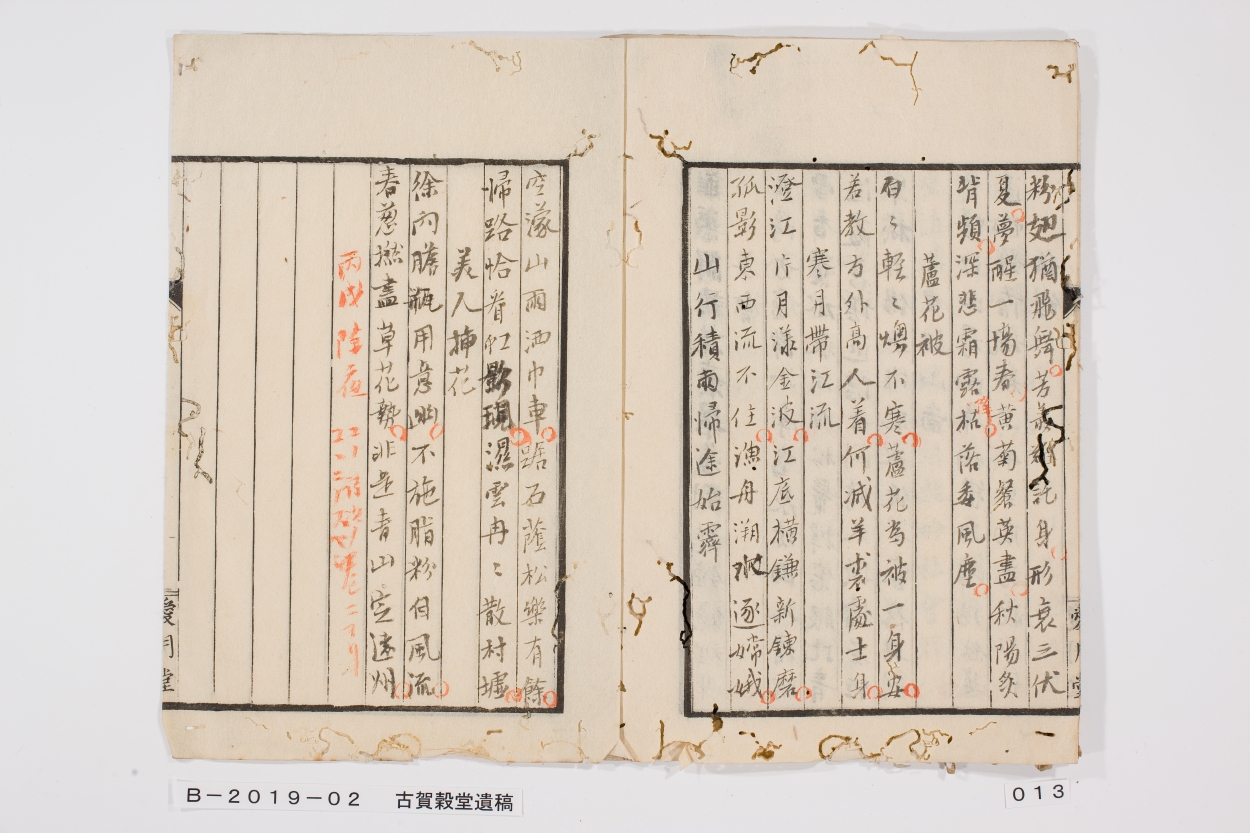 粉翅猶飛舞芳託身形衰三伏
夏夢醒一場春黄菊餐英盡秋陽炙
背頻深悲霜露枯落委風塵
蘆花被
白〻輕〻燠不寒蘆花為被一身安
若教方外高人着何減羊裘處士身
寒月帯江流
澄江片月漾金波江底横鎌新錬磨
孤影東西流不住漁舟溯逐嫦娥
山行積雨帰途始霽
空濛山雨洒巾車踞石蔭松樂有餘
帰路恰看虹影現濕雲冉〻散村墟
美人挿花
徐向膽瓶用意幽不施脂粉自風流
春葱撚盡草花勢非是青山定遠州
丙戌除夜
愛月堂
愛月堂
B-2019-02 古賀穀堂遺稿
013